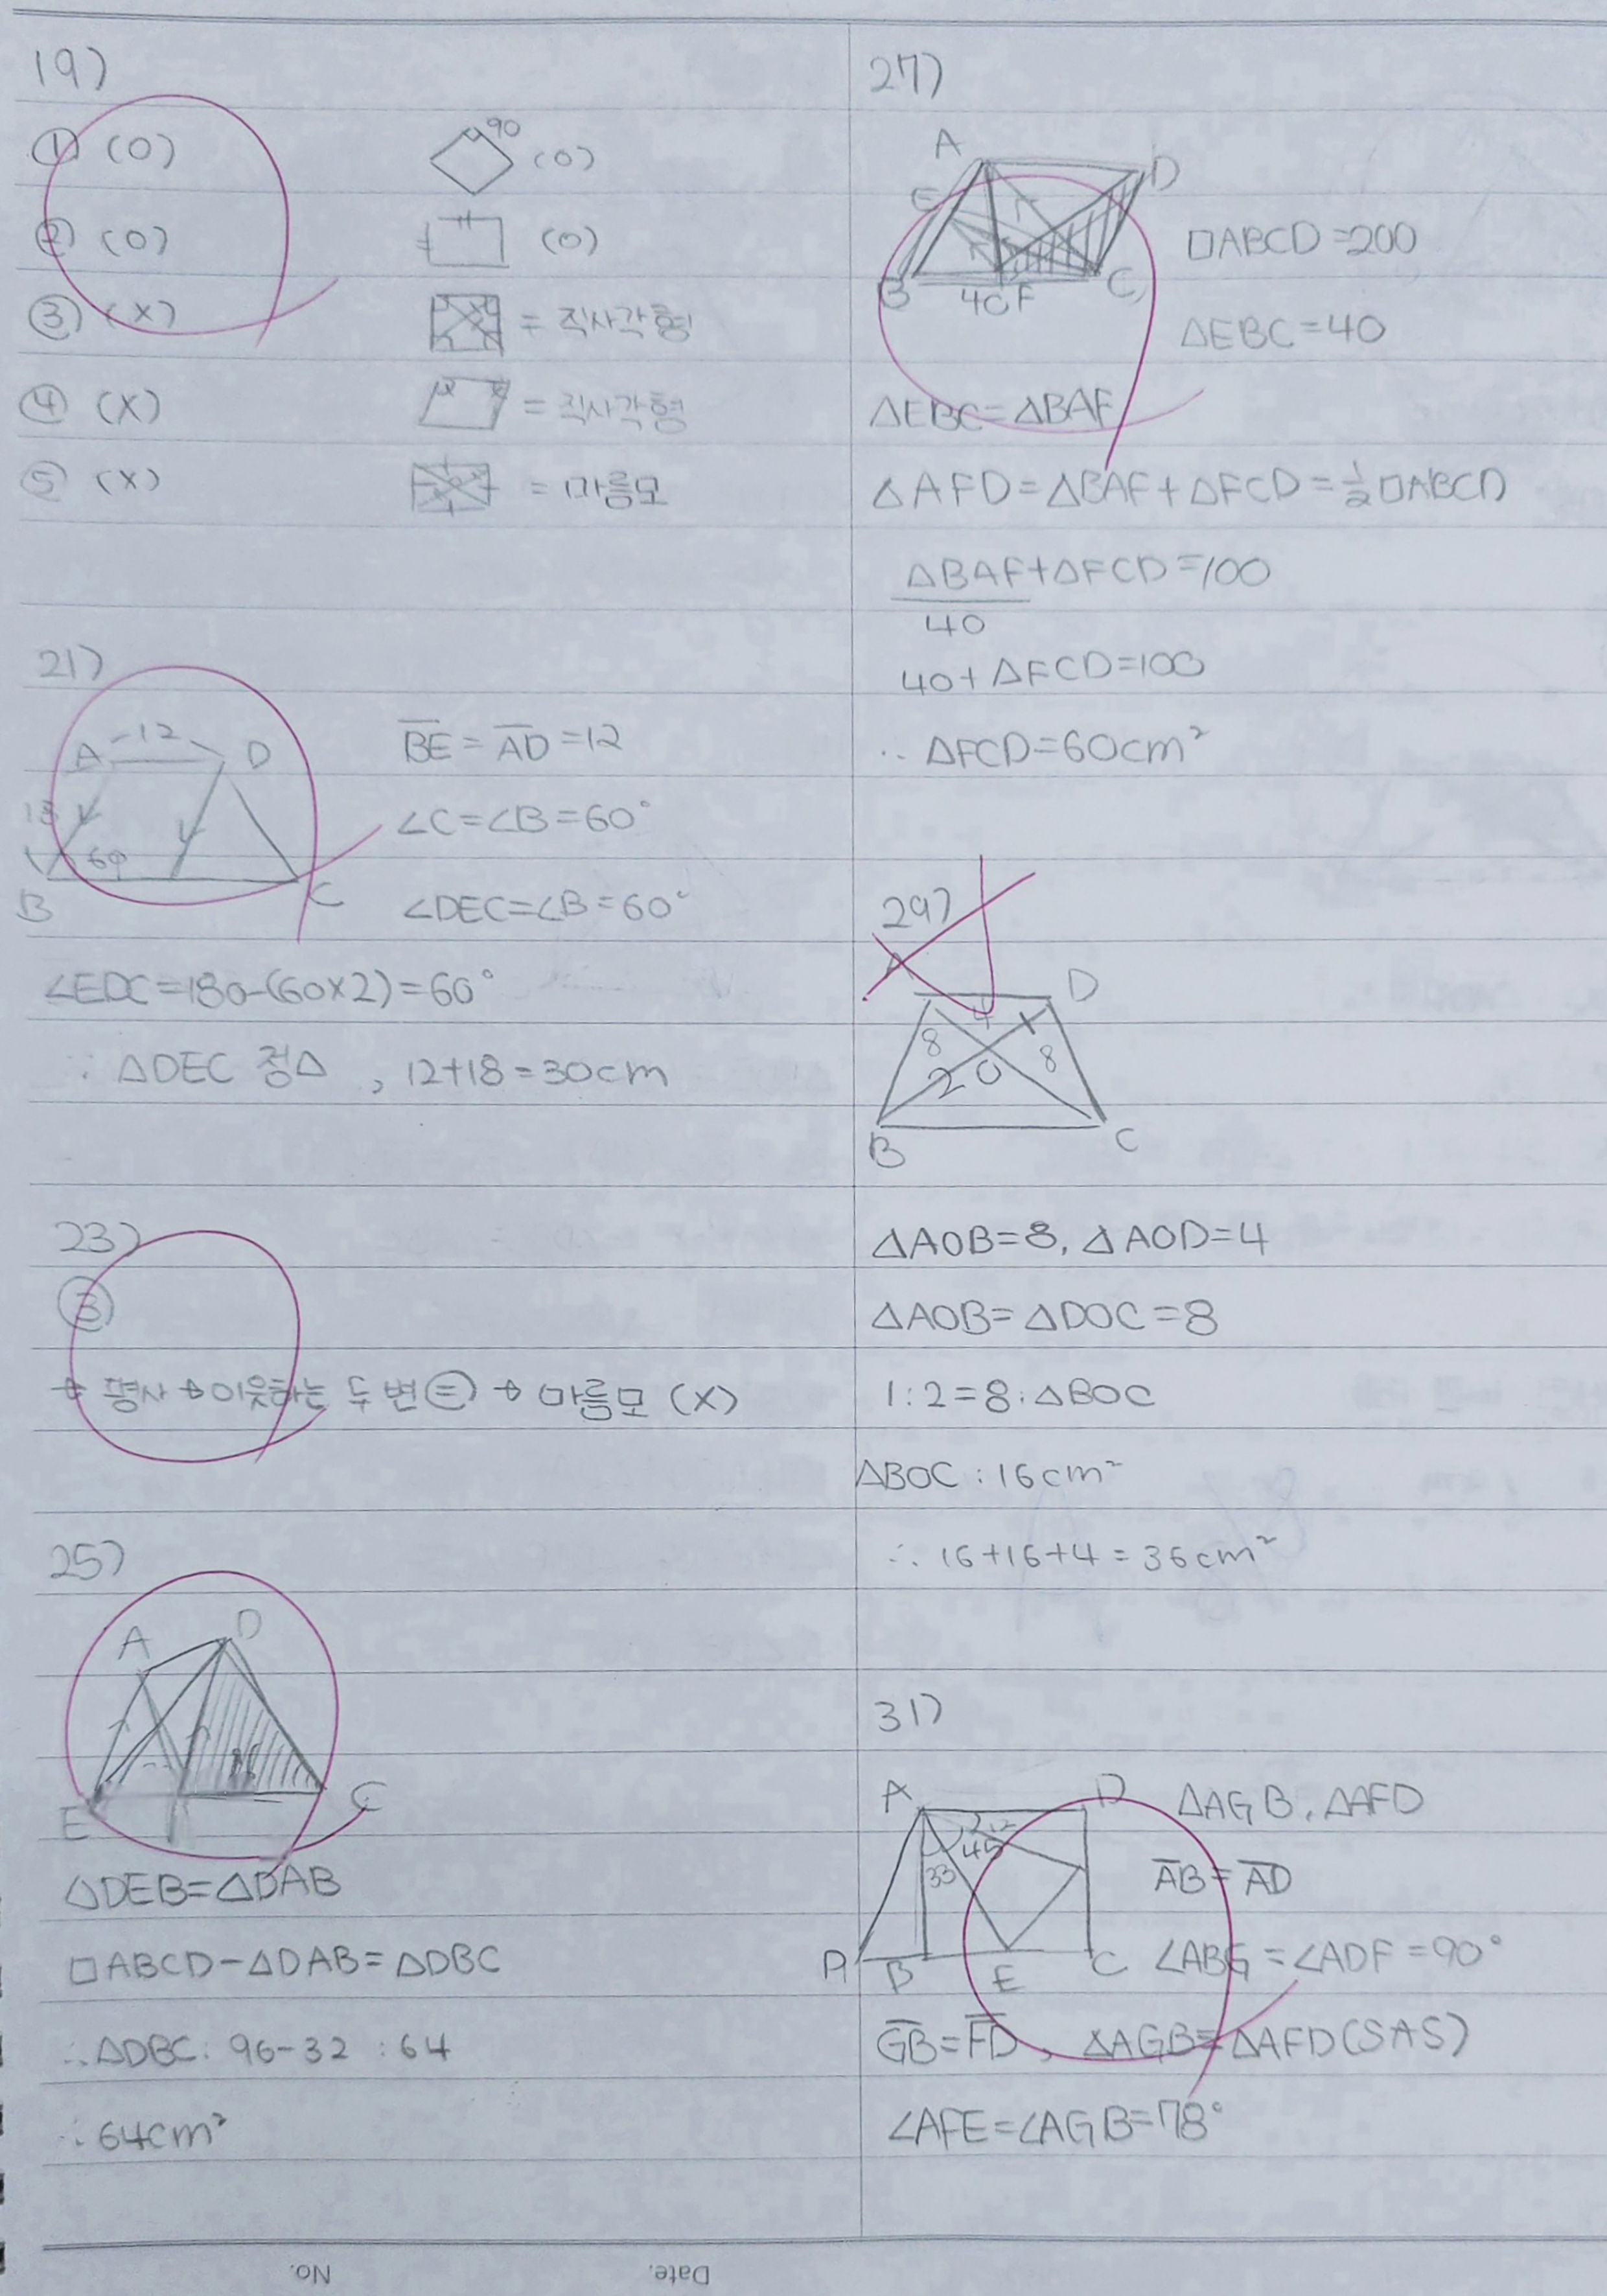 19)
① (O) 90 (O)
② (O) (O)
③ (X) = 직사각형
④ (X) = 직사각형
⑤ (X) = 마름모
21)
A 12 D
18 60
B C
BE = AD = 12
∠C=∠B=60°
∠DEC=∠B=60°
∠EDC=180-(60×2)=60°
∴ △DEC 정△ , 12+18=30cm
23)
③
→ 평사 → 이웃하는 두 변 = → 마름모 (X)
25)
A D
E C
△DEB=△DAB
□ABCD-△DAB=△DBC
∴△DBC: 96-32 : 64
∴ 64cm²
27)
A D
E
B 40 F C
□ABCD=200
△EBC=40
△EBC=△BAF
△AFD=△BAF+△FCD=½□ABCD
△BAF+△FCD=100
40
40+△FCD=100
∴ △FCD=60cm²
29)
A D
4
8 8
20
B C
△AOB=8, △AOD=4
△AOB=△DOC=8
1:2=8:△BOC
△BOC : 16cm²
∴ 16+16+4=36cm²
31)
A D
12
45
33
B E C
△AGB, △AFD
AB=AD
∠ABG=∠ADF=90°
GB=FD, △AGB≡△AFD(SAS)
∠AFE=∠AGB=78°
No. Date.